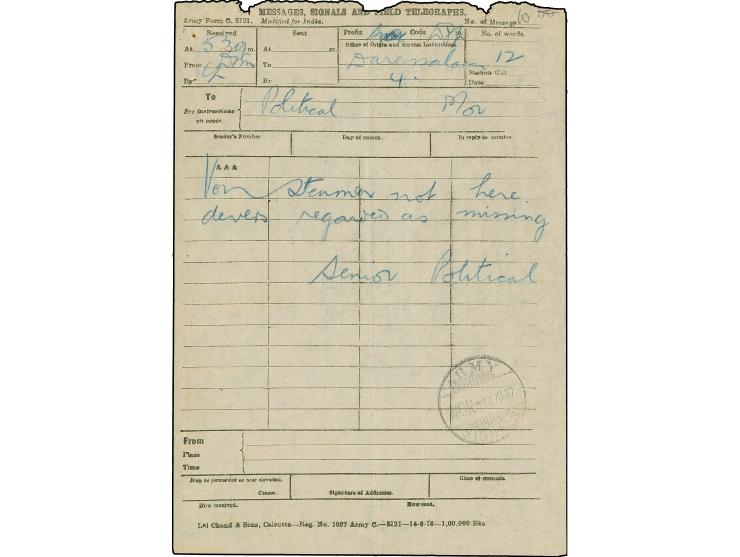 MESSAGES, SIGNALS AND FIELD TELEGRAPHS.
Army Form C. 2121. Modified for India. No. of Message
Received Sent Prefix Code m. No. of words.
At 5 30 m. At m. Office of Origin and Service Instructions.
From To Daressalam 12
By By 4. Station Call
Date
To Political Mor
See Instructions
on cover.
Sender's Number Day of month. In reply to number.
A A A
Von Steumer not here.
devers regarded as missing
Senior Political
ARMY
From
Place
Time
May be forwarded as now corrected. Class of message.
Censor. Signature of Addressor.
How received. How sent.
Lal Chand & Sons, Calcutta—Reg. No. 1057 Army C.—2121—14-9-16—1,00,000 Bks.